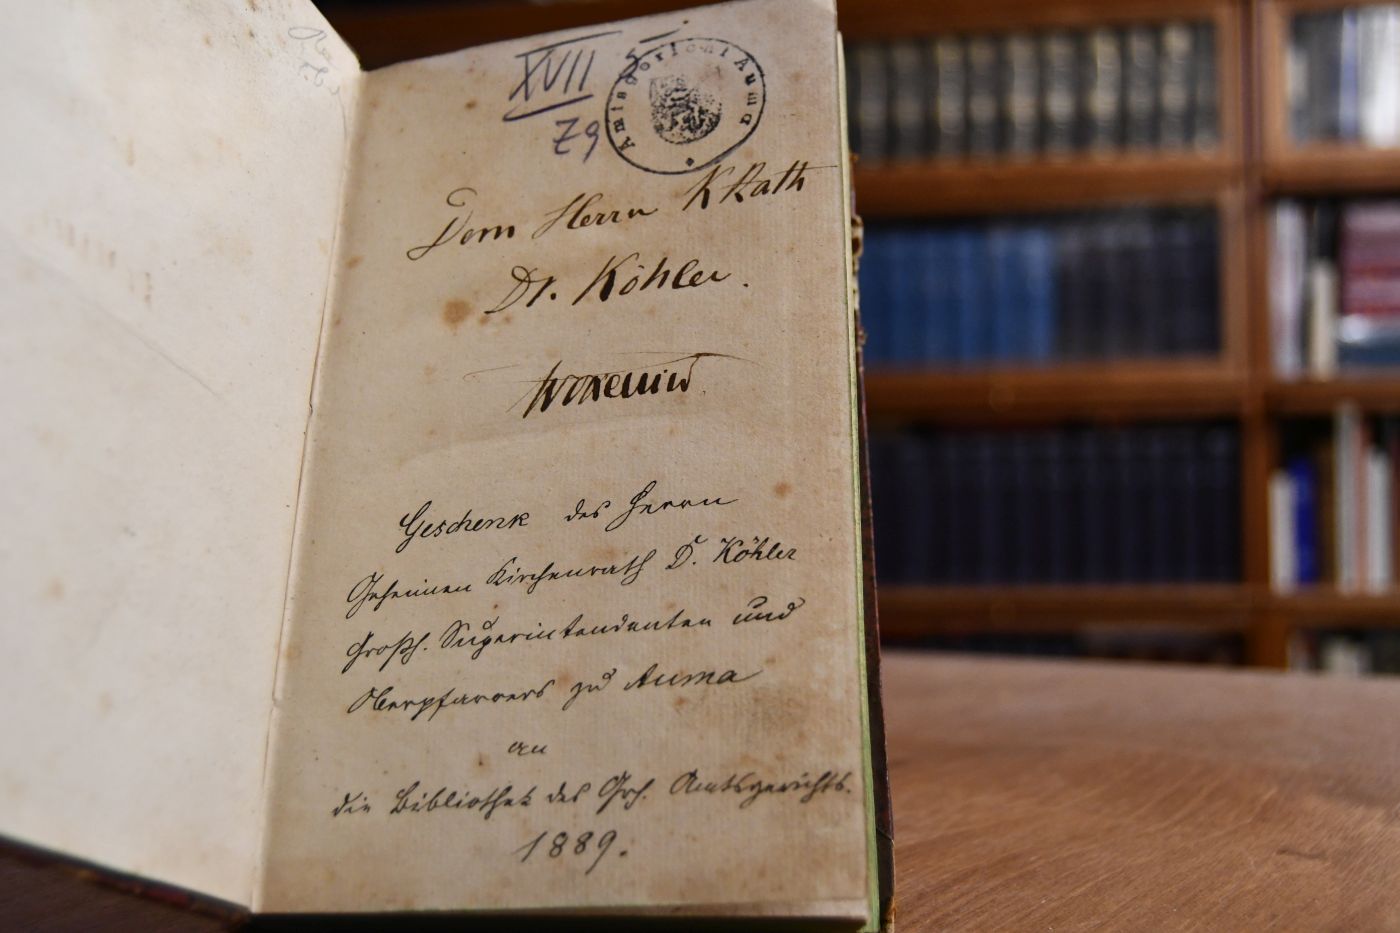 XVII
Z9
Amtsgericht Auma
Dem Herrn KRath
Dr. Köhler.
Geschenk des Herrn
Geheimen Kirchenrath D. Köhler
Großh. Superintendenten und
Oberpfarrers zu Auma
an
die Bibliothek des Grh. Amtsgerichts.
1889.